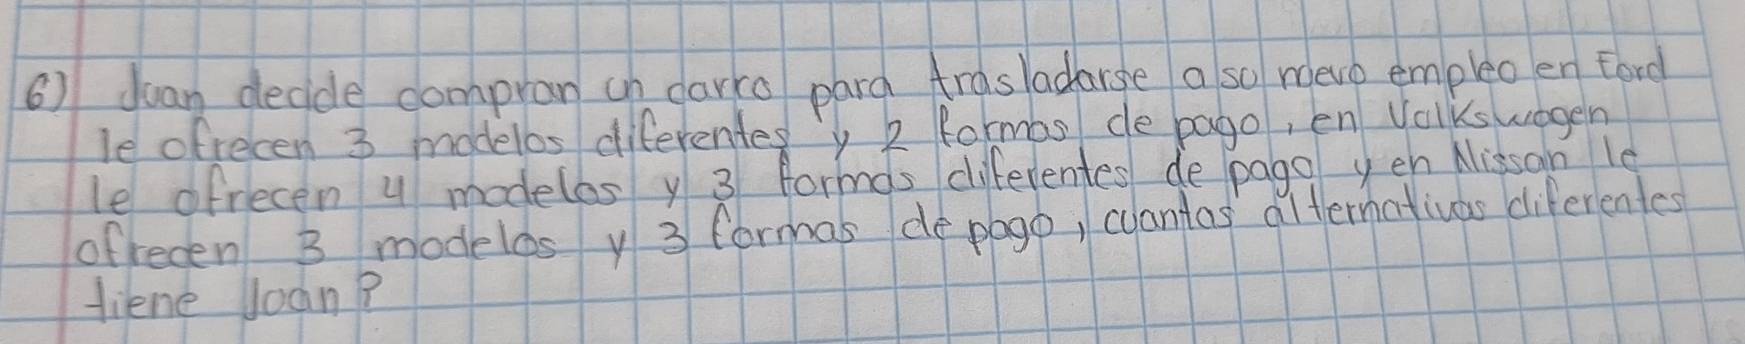 6) Juan decide compran un carro para trasladarse a so nuevo empleo en Ford
le ofrecen 3 modelos diferentes y 2 formas de pago, en Valkswagen
le ofrecen 4 modelos y 3 formas diferentes de pago y en Nissan le
ofrecen 3 modelos y 3 formas de pago, cuantas alternativas diferentes
tiene Joan?